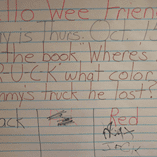 llo Wee Frien
y is Thurs. Oct. 15
the book, "Where's
R-U-C-K" what color
mmy's truck he lost?
ack Red
Max
Jack